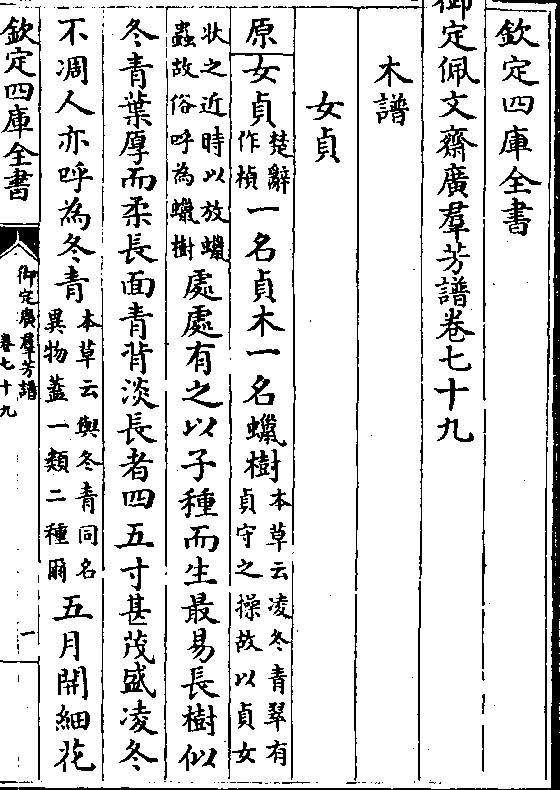 欽定四庫全書
御定佩文齋廣羣芳譜卷七十九
木譜
女貞
原女貞楚辭作楨一名貞木一名蠟樹本草云凌冬青翠有貞守之操故以貞女
狀之近時以放蠟蟲故俗呼為蠟樹處處有之以子種而生最易長樹似
冬青葉厚而柔長面青背淡長者四五寸甚茂盛凌冬
不凋人亦呼為冬青本草云與冬青同名異物葢一類二種爾五月開細花
欽定四庫全書
御定廣羣芳譜
卷七十九
一